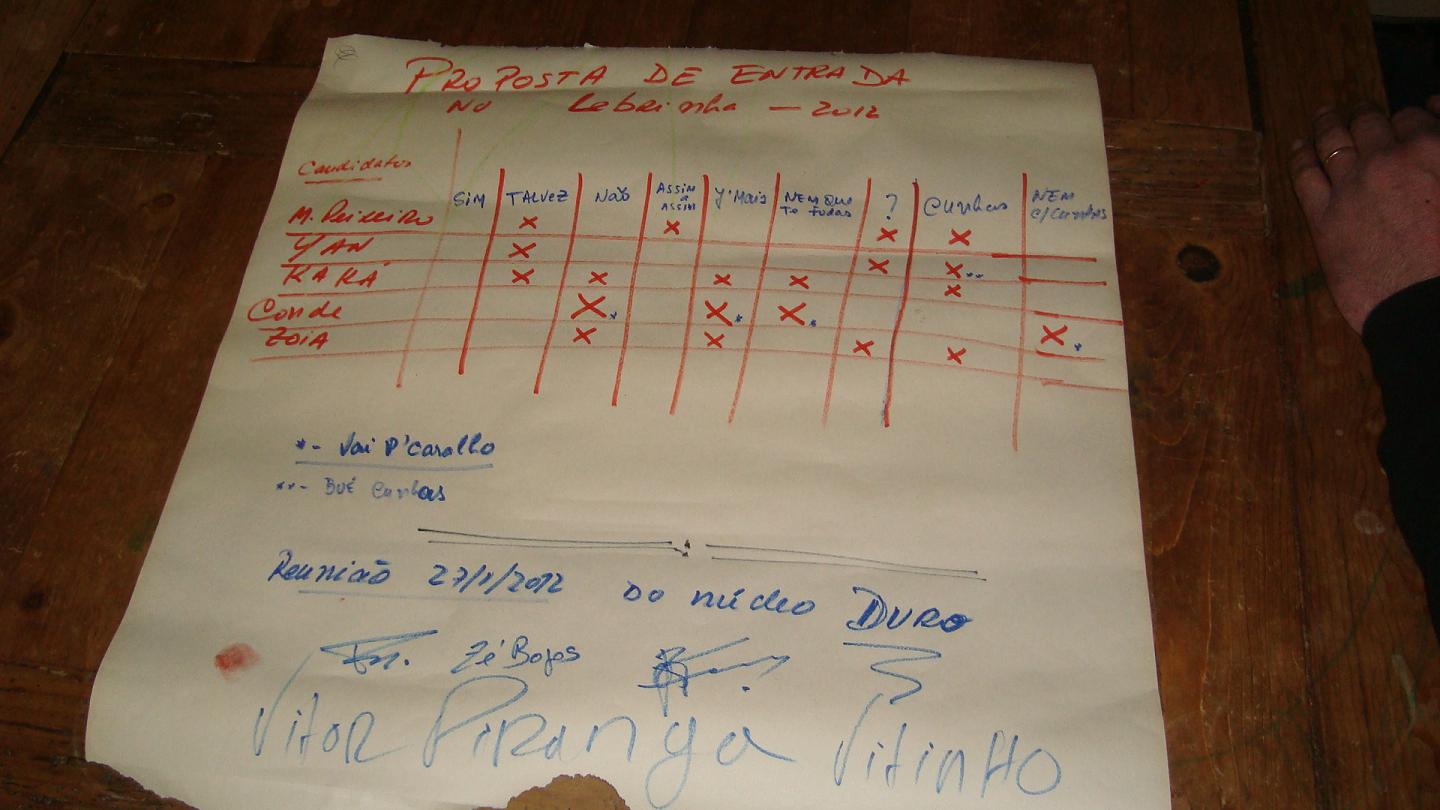 PROPOSTA DE ENTRADA
NO Lebrinha — 2012
Candidatos
SIM TALVEZ NÃO ASSIM a ASSIM J'Mais NEM QUE Te Fodas ? Cunhas NEM c/Cunhas
M. Peixeiro X X X X
YAN X X X**
KAKÁ X X X X X
Conde X* X* X* X*
ZOIA X X X X
*- Vai P'Caralho
**- BUÉ Cunhas
Reunião 27/1/2012 Do núcleo DURO
Zé Bojos
Vitor Piranga Vitinho